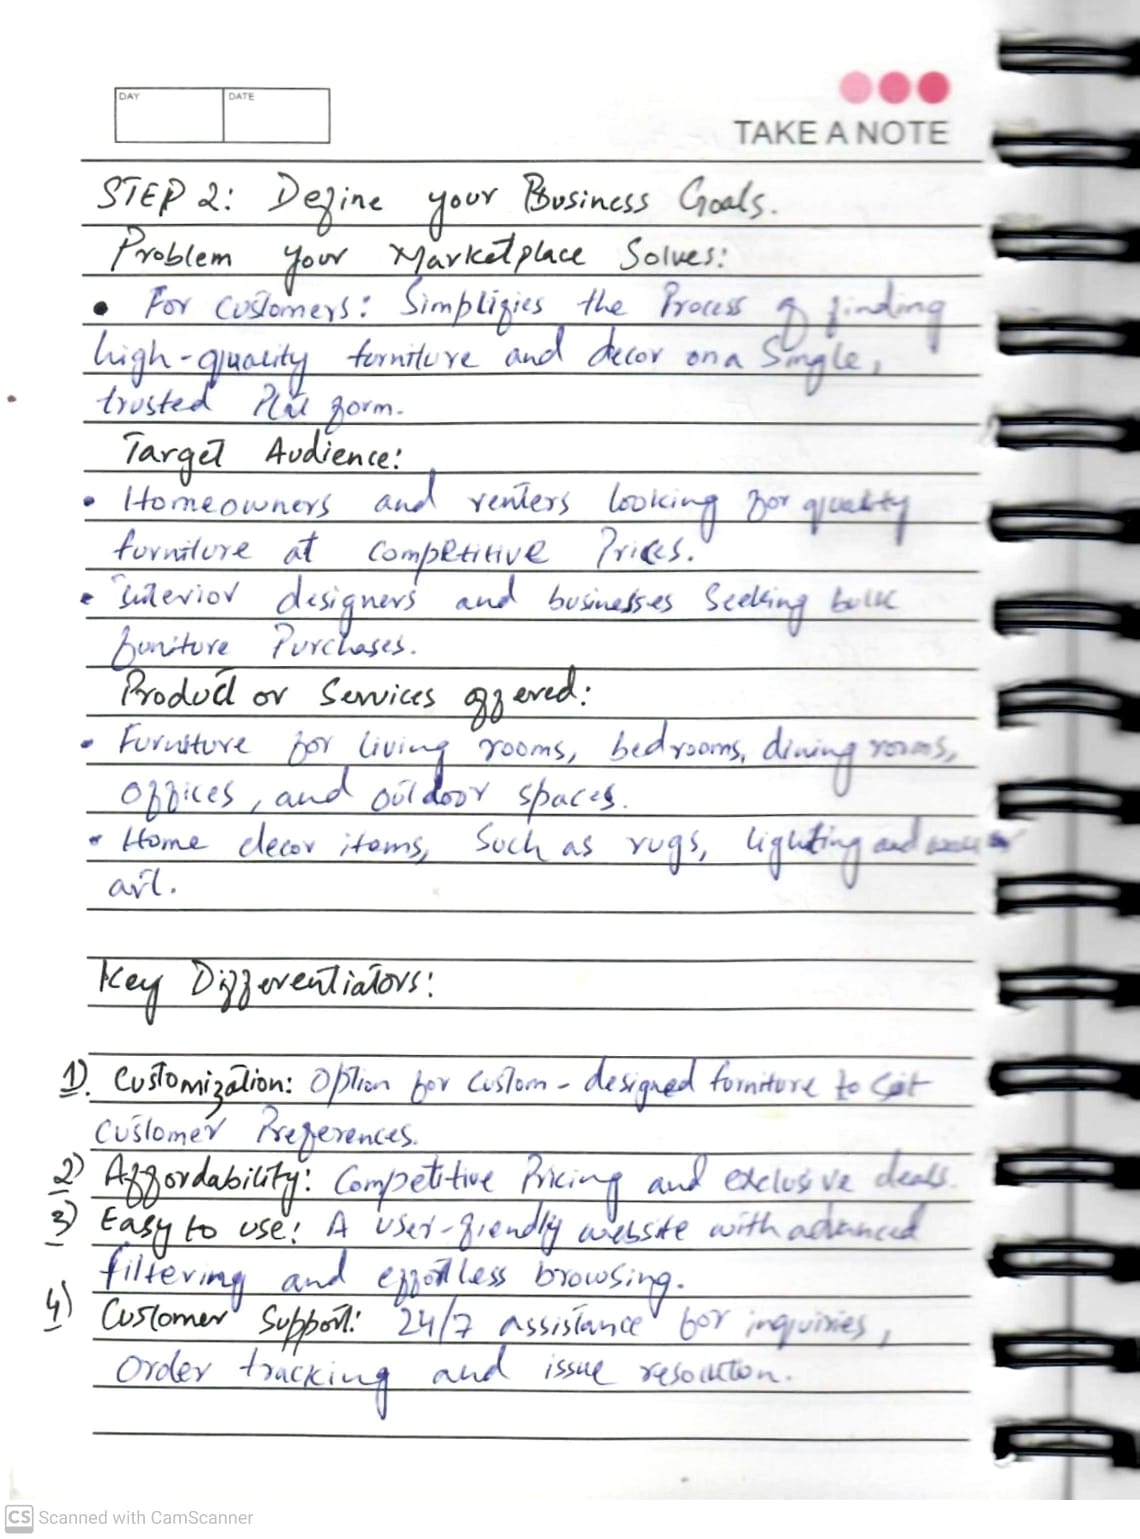 DAY
DATE
TAKE A NOTE
STEP 2: Define your Business Goals.
Problem your Marketplace Solves:
• For customers: Simplifies the Process of finding
high-quality furniture and decor on a Single,
trusted Platform.
Target Audience:
• Homeowners and renters looking for quality
furniture at competitive Prices.
• Interior designers and businesses Seeking bulk
funiture Purchases.
Product or Services offered:
• Furniture for living rooms, bedrooms, dining rooms,
offices, and outdoor spaces.
• Home decor items, Such as rugs, lighting and
art.
Key Differentiators:
1). Customization: Option for custom-designed furniture to
customer Preferences.
2) Affordability: Competitive Pricing and exclusive deals.
3) Easy to use: A user-friendly website with advanced
filtering and effortless browsing.
4) Customer Support: 24/7 assistance for inquiries,
order tracking and issue resolution.
CS Scanned with CamScanner